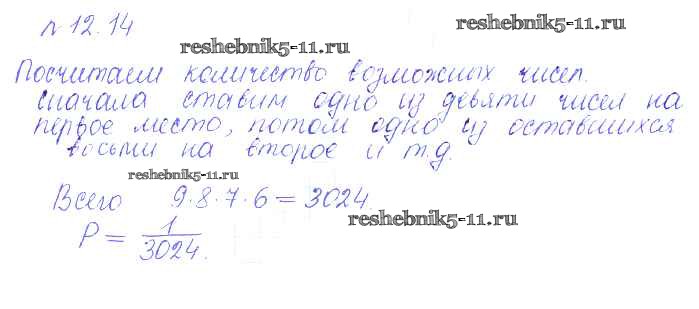 № 12.14
reshebnik5-11.ru
reshebnik5-11.ru
Посчитаем количество возможных чисел.
Сначала ставим одно из девяти чисел на
первое место, потом одно из оставшихся
восьми на второе и т.д.
reshebnik5-11.ru
Всего 9·8·7·6 = 3024.
reshebnik5-11.ru
P = 1/3024.